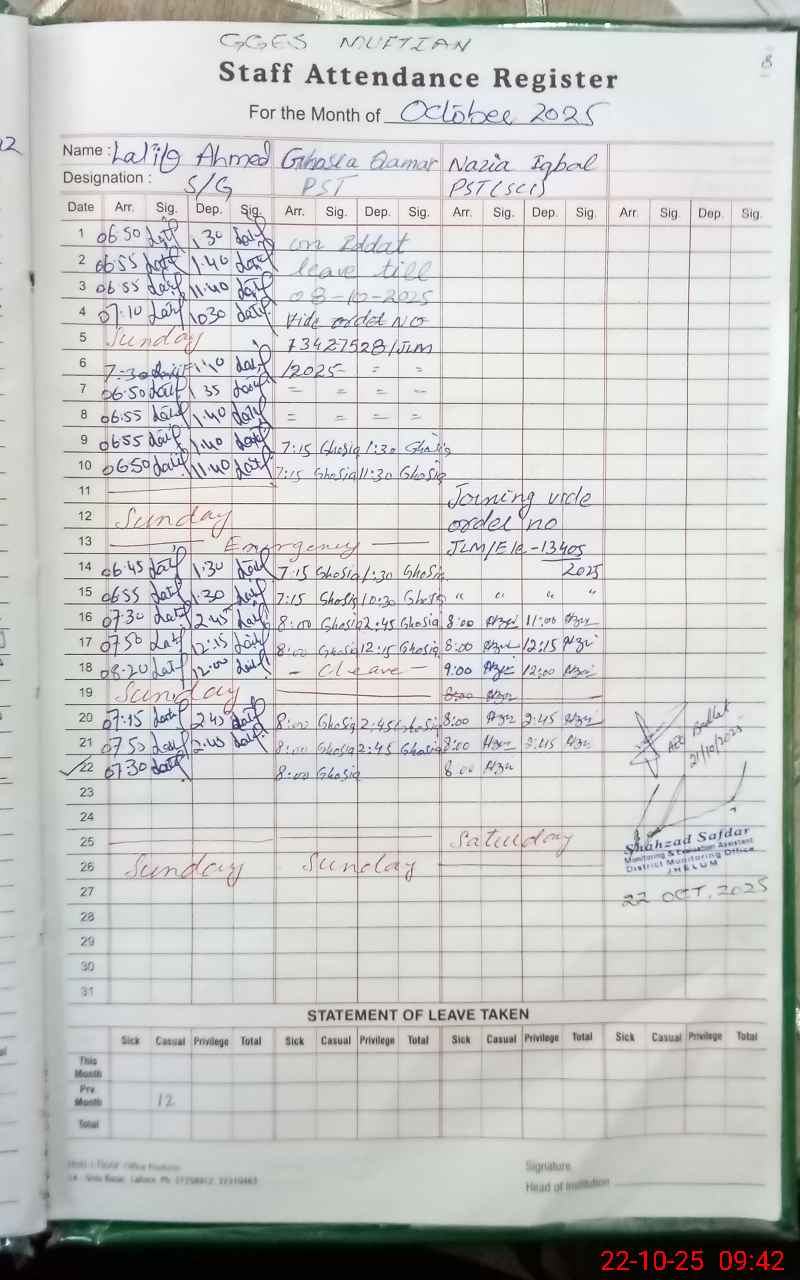 8
GGES MUFTIAN
Staff Attendance Register
For the Month of October 2025
Name : Latif Ahmed Ghosia Qamar Nazia Iqbal
Designation : S/G PST PST (SCI)
Date Arr. Sig. Dep. Sig. Arr. Sig. Dep. Sig. Arr. Sig. Dep. Sig. Arr. Sig. Dep. Sig.
1 06:50 Latif 1:30 Latif on Iddat
2 06:55 Latif 1:40 Latif leave till
3 06:55 Latif 11:40 Latif 08-10-2025
4 07:10 Latif 10:30 Latif vide order NO
5 Sunday 13427528/JLM
6 7:30 Latif 1:10 Latif /2025- = =
7 06:50 Latif 1:35 Latif = = = =
8 06:55 Latif 1:40 Latif = = = =
9 06:55 Latif 1:40 Latif 7:15 Ghosia 1:30 Ghosia
10 06:50 Latif 11:40 Latif 7:15 Ghosia 11:30 Ghosia
11 Joining vide
12 Sunday order no
13 Emergency JLM/E/e-13405
14 06:45 Latif 1:30 Latif 7:15 Ghosia 1:30 Ghosia 2025
15 06:55 Latif 1:30 Latif 7:15 Ghosia 10:30 Ghosia " " " "
16 07:30 Latif 2:45 Latif 8:00 Ghosia 2:45 Ghosia 8:00 11:00
17 07:50 Latif 12:15 Latif 8:00 Ghosia 12:15 Ghosia 8:00 12:15
18 08:20 Latif 12:00 Latif - C leave - 9:00 12:00
19 Sunday 8:00
20 07:15 Latif 2:45 Latif 8:00 Ghosia 2:45 Ghosia 8:00 2:45
21 07:50 Latif 2:45 Latif 8:00 Ghosia 2:45 Ghosia 8:00 2:45
AEO
21/10/2025
22 07:30 Latif 8:00 Ghosia 8:00
23
24
25 Saturday
Shahzad Safdar
Monitoring & Evaluation Assistant
District Monitoring Office
JHELUM
26 Sunday Sunday
27
22 OCT, 2025
28
29
30
31
STATEMENT OF LEAVE TAKEN
Sick Casual Privilege Total Sick Casual Privilege Total Sick Casual Privilege Total Sick Casual Privilege Total
This Month
Pre. Month 12
Total
Signature
Head of Institution
22-10-25 09:42